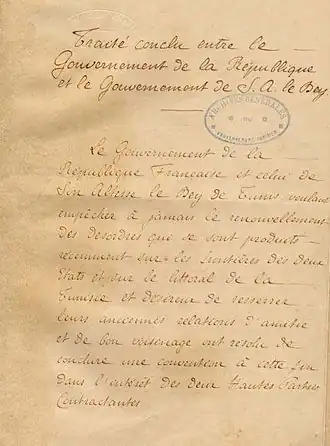 Traité conclu entre le
Gouvernement de la République
et le Gouvernement de S. A. le Bey
ARCHIVES GÉNÉRALES
DU
GOUVERNEMENT
Le Gouvernement de la
République Française et celui de
Son Altesse le Bey de Tunis voulant
empêcher à jamais le renouvellement
des desordres qui se sont produits
récemment sur les frontières des deux
Etats et sur le littoral de la
Tunisie et désireux de resserrer
leurs anciennes relations d'amitié
et de bon voisinage ont résolu de
conclure une convention à cette fin
dans l'intérêt des deux Hautes Parties
Contractantes